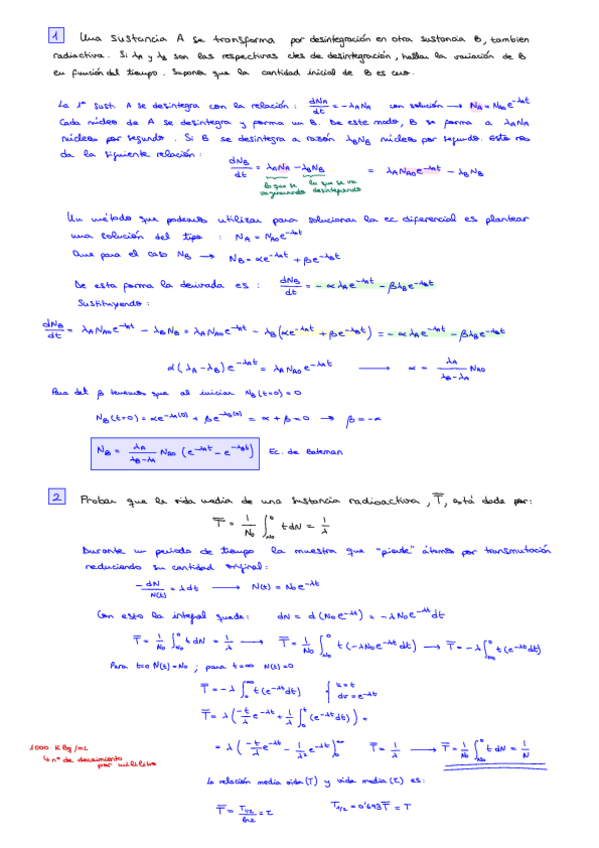 1 Una Sustancia A se transforma por desintegración en otra sustancia B, tambien
radiactiva. Si λA y λB son las respectivas ctes de desintegración, hallar la variación de B
en función del tiempo. Suponga que la cantidad inicial de B es cero.
La 1ª Sust. A se desintegra con la relación: dNA/dt = -λANA con solución → NA = NA0e^-λAt
Cada núcleo de A se desintegra y forma un B. De este modo, B se forma a λANA
núcleos por segundo. Si B se desintegra a razón λBNB núcleos por segundo. Esto nos
da la siguiente relación:
dNB/dt = λANA - λBNB = λANA0e^-λAt - λBNB
lo que se lo que se va
desintegrando
Un método que podemos utilizar para solucionar la ec diferencial es plantear
una solución del tipo: NA = NA0e^-λAt
Que para el caso NB → NB = αe^-λAt + βe^-λBt
De esta forma la derivada es: dNB/dt = -αλAe^-λAt - βλBe^-λBt
Sustituyendo:
dNB/dt = λANA0e^-λAt - λBNB = λANA0e^-λAt - λB(αe^-λAt + βe^-λBt) = -αλAe^-λAt - βλBe^-λBt
α(λA-λB)e^-λAt = λANA0e^-λAt → α = λA/(λB-λA) NA0
Para det β tenemos que al iniciar NB(t=0) = 0
NB(t=0) = αe^-λA(0) + βe^-λB(0) = α + β = 0 → β = -α
NB = λA/(λB-λA) NA0 (e^-λAt - e^-λBt) Ec. de Bateman
2 Probar que la vida media de una sustancia radioactiva, T̅, está dada por:
T̅ = 1/N0 ∫_N0^0 t dN = 1/λ
Durante un periodo de tiempo la muestra que "pierde" átomos por transmutación
reduciendo su cantidad original:
-dN/N(t) = λdt → N(t) = N0e^-λt
Con esto la integral queda: dN = d(N0e^-λt) = -λN0e^-λt dt
T̅ = 1/N0 ∫_N0^0 t dN = 1/λ → T̅ = 1/N0 ∫_N0^0 t(-λN0e^-λt dt) → T̅ = -λ∫_N0^0 t(e^-λt dt)
Para t=0 N(t) = N0; para t=∞ N(t) = 0
T̅ = -λ∫_0^∞ t(e^-λt dt) { u = t
dv = e^-λt
T̅ = λ(-t/λ e^-λt + 1/λ ∫_0^t (e^-λt dt)) =
= λ(-t/λ e^-λt - 1/λ² e^-λt)_0^∞ T̅ = 1/λ → T̅ = 1/N0 ∫_N0^0 t dN = 1/N
1000 KBq/mL
↳ nº de decaimiento
por mililitro
La relación media vida (T) y vida media (τ) es:
T̅ = T1/2/ln2 = τ T1/2 = 0'693T̅ = T